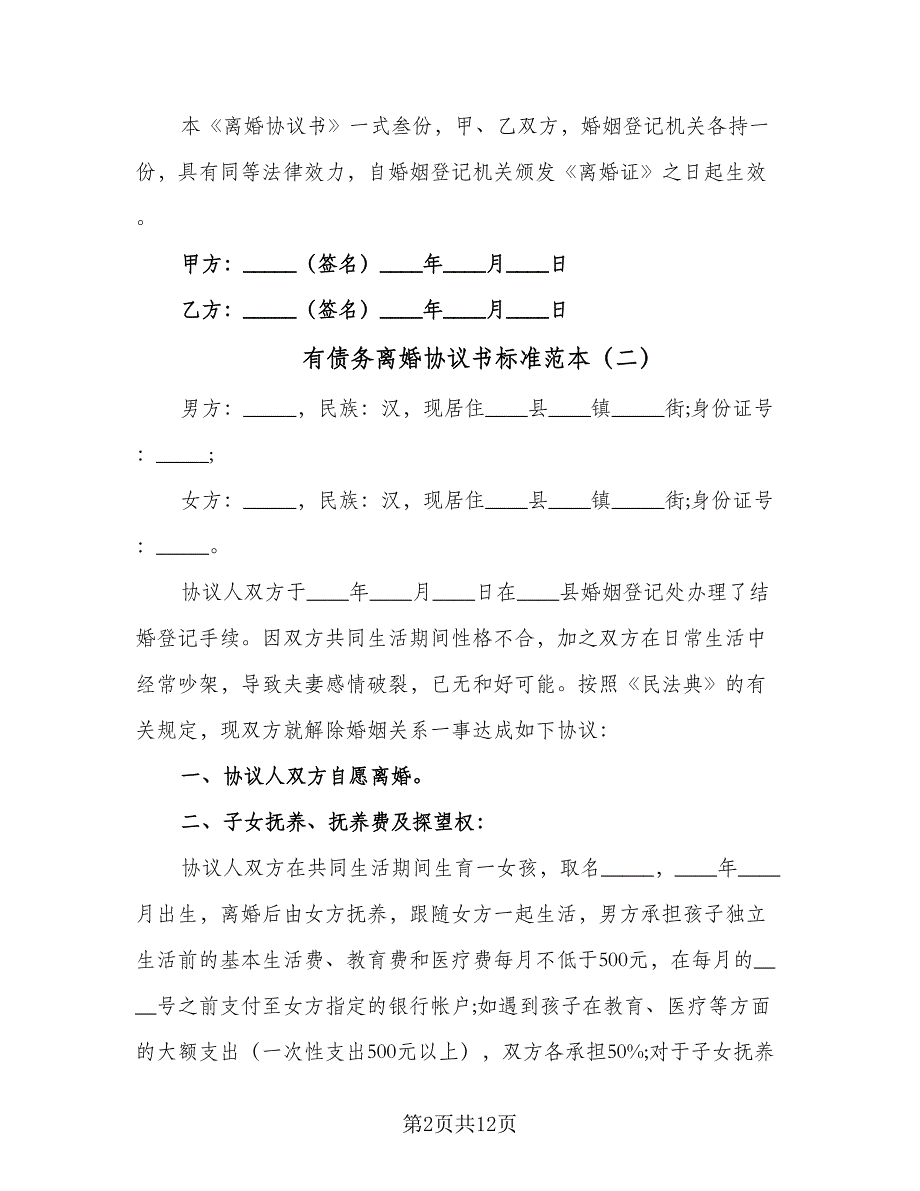 本《离婚协议书》一式叁份，甲、乙双方，婚姻登记机关各持一
份，具有同等法律效力，自婚姻登记机关颁发《离婚证》之日起生效
。
甲方：_____（签名）____年____月____日
乙方：_____（签名）____年____月____日
有债务离婚协议书标准范本（二）
男方：_____，民族：汉，现居住____县____镇_____街;身份证号
：_____;
女方：_____，民族：汉，现居住____县____镇_____街;身份证号
：_____。
协议人双方于____年____月____日在____县婚姻登记处办理了结
婚登记手续。因双方共同生活期间性格不合，加之双方在日常生活中
经常吵架，导致夫妻感情破裂，已无和好可能。按照《民法典》的有
关规定，现双方就解除婚姻关系一事达成如下协议：
一、协议人双方自愿离婚。
二、子女抚养、抚养费及探望权：
协议人双方在共同生活期间生育一女孩，取名_____，____年____
月出生，离婚后由女方抚养，跟随女方一起生活，男方承担孩子独立
生活前的基本生活费、教育费和医疗费每月不低于500元，在每月的__
__号之前支付至女方指定的银行帐户;如遇到孩子在教育、医疗等方面
的大额支出（一次性支出500元以上），双方各承担50%;对于子女抚养
第2页共12页